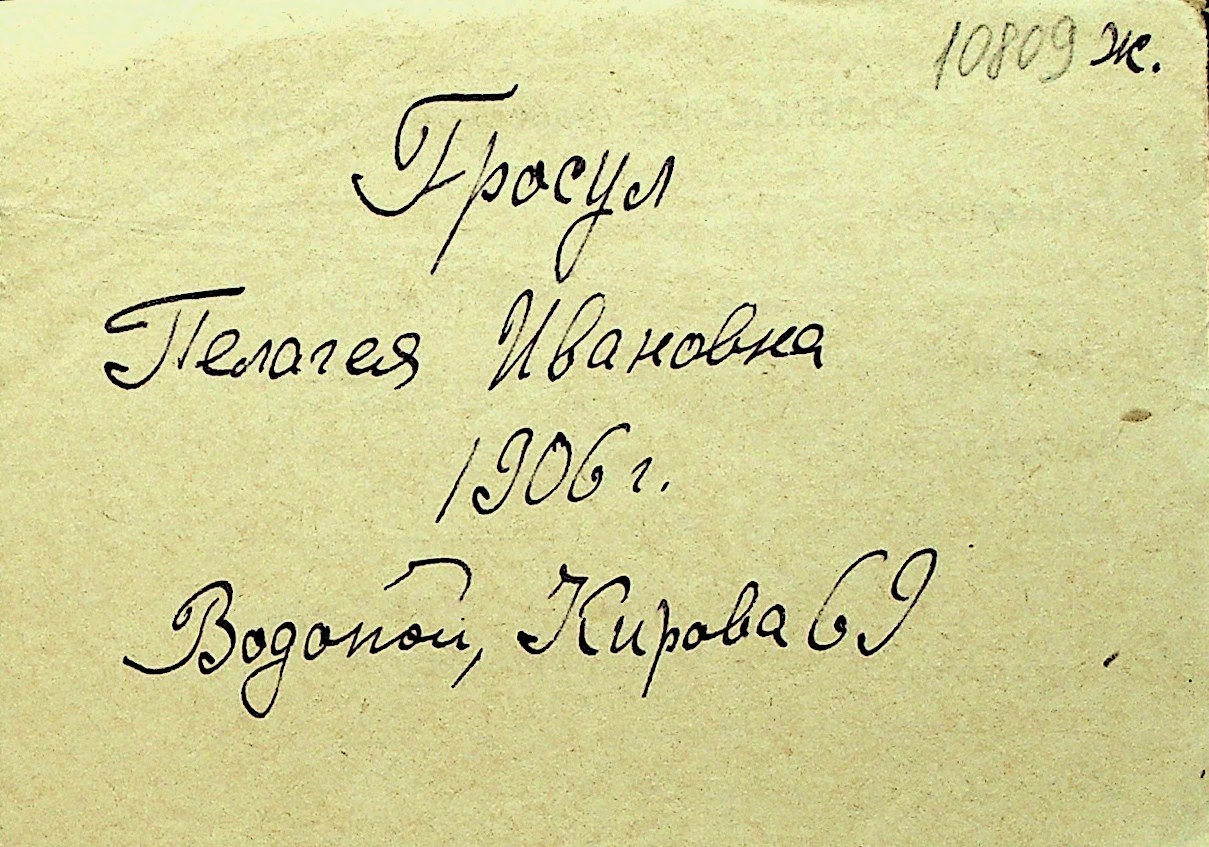 10809 ж.
Гросул
Пелагея Ивановна
1906 г.
Водопой, Кирова 69